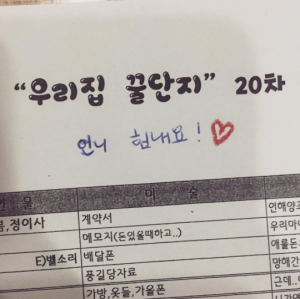 "우리집 꿀단지" 20차
언니 힘내요!
물 미 술
정이사 계약서 인해양조
메모지(돈있을때하고..) 우리마
E)벨소리 배달폰 애물돈
풍길당자료 망해간
가방,옷들,가을폰 근데..